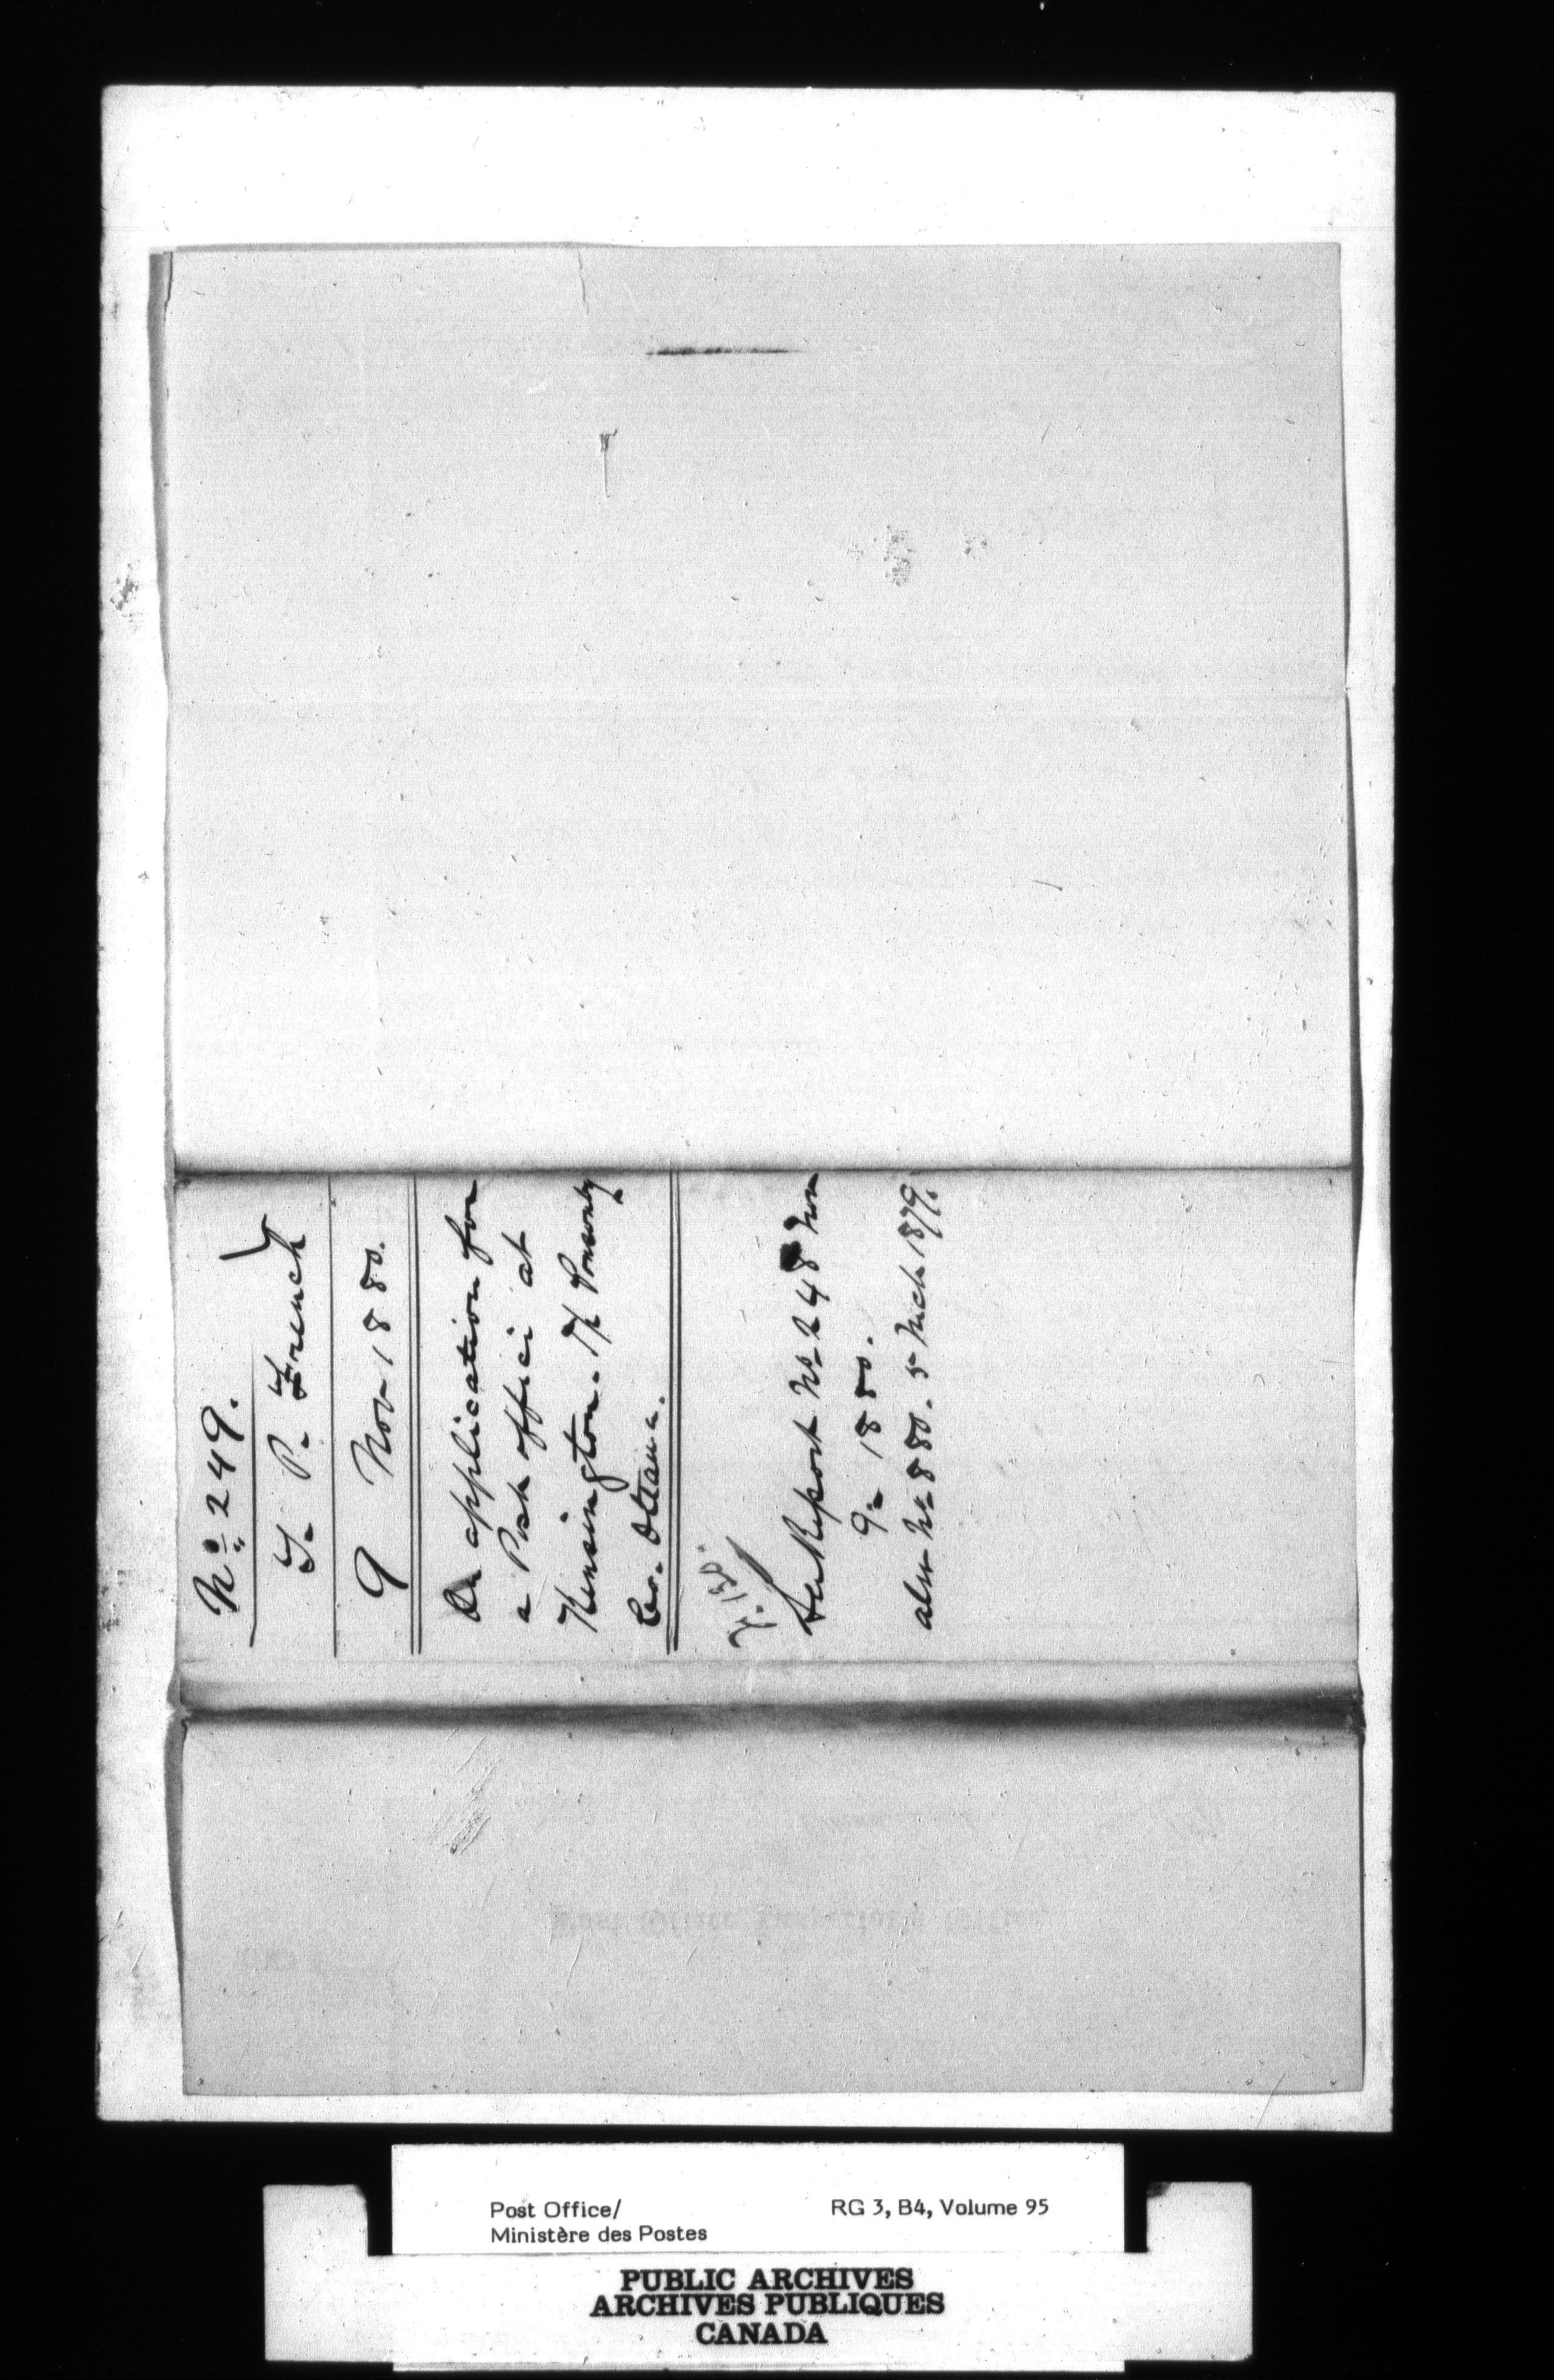 No. 249.
T. P. French
9 Nov 1880.
On application for
a Post office at
Kensington. Tp Ponsonby
Co. Ottawa.
See Report No 248 Nov
9 - 1880.
also No 880. 5 Mch 1879.
Post Office/
Ministère des Postes
RG 3, B4, Volume 95
PUBLIC ARCHIVES
ARCHIVES PUBLIQUES
CANADA